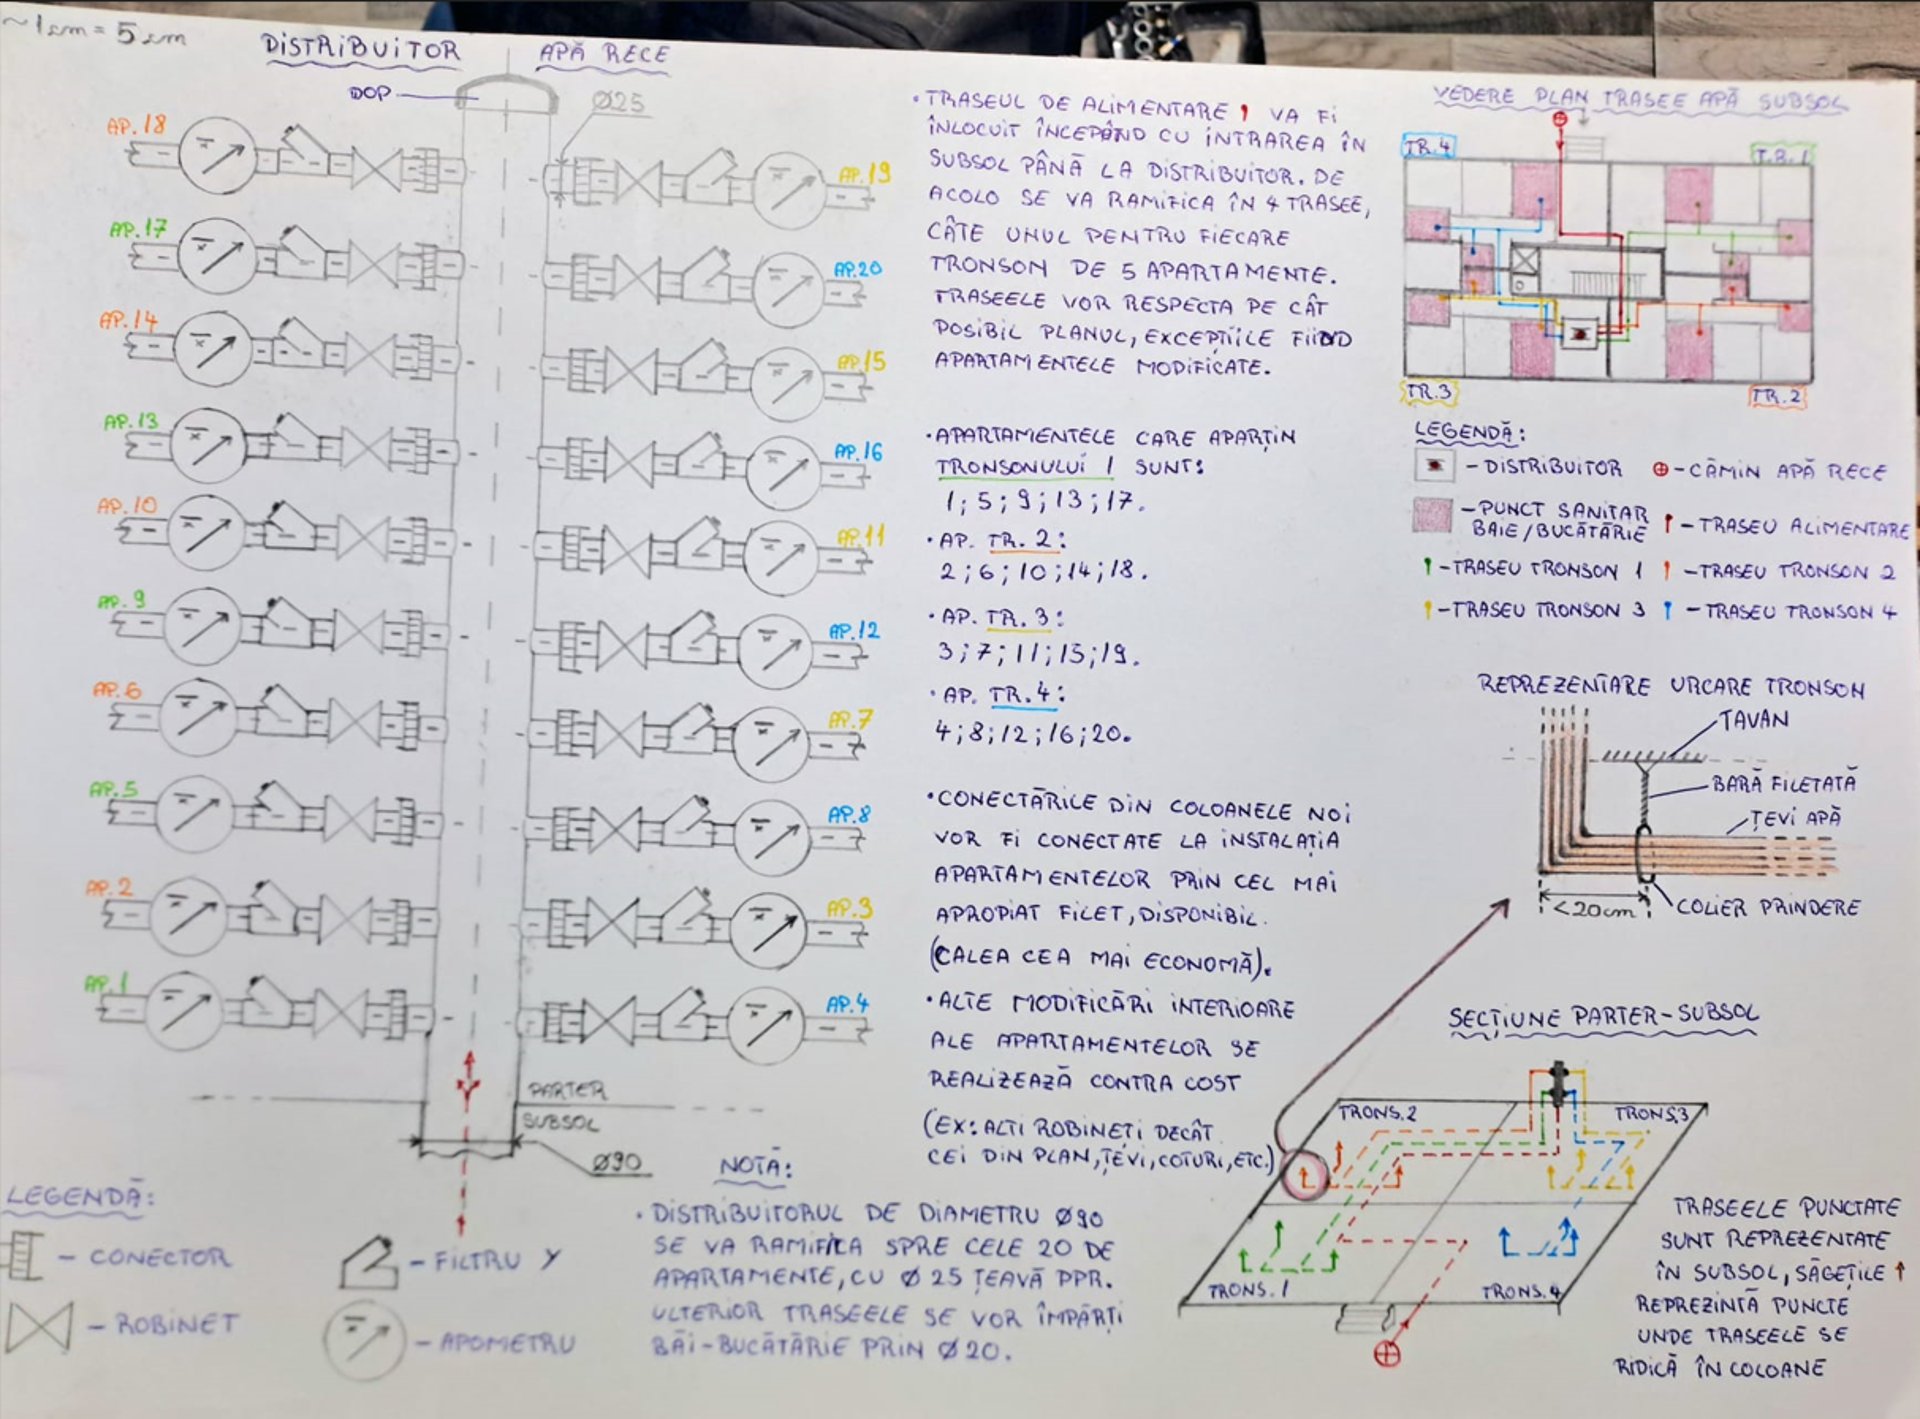 ~1cm = 5cm
DISTRIBUITOR APĂ RECE
DOP
Ø25
AP. 18
AP.17
AP.14
AP.13
AP.10
AP.9
AP.6
AP.5
AP.2
AP.1
AP.19
AP.20
AP.15
AP.16
AP.11
AP.12
AP.7
AP.8
AP.3
AP.4
PARTER
SUBSOL
Ø90
LEGENDĂ:
- CONECTOR
- FILTRU Y
- ROBINET
- APOMETRU
NOTĂ:
• DISTRIBUITORUL DE DIAMETRU Ø90
SE VA RAMIFICA SPRE CELE 20 DE
APARTAMENTE, CU Ø 25 ȚEAVĂ PPR.
ULTERIOR TRASEELE SE VOR ÎMPĂRȚI
BĂI-BUCĂTĂRIE PRIN Ø20.
• TRASEUL DE ALIMENTARE VA FI
ÎNLOCUIT ÎNCEPÂND CU INTRAREA ÎN
SUBSOL PÂNĂ LA DISTRIBUITOR. DE
ACOLO SE VA RAMIFICA ÎN 4 TRASEE,
CÂTE UNUL PENTRU FIECARE
TRONSON DE 5 APARTAMENTE.
TRASEELE VOR RESPECTA PE CÂT
POSIBIL PLANUL, EXCEPȚIILE FIIND
APARTAMENTELE MODIFICATE.
• APARTAMENTELE CARE APARȚIN
TRONSONULUI 1 SUNT:
1; 5; 9; 13; 17.
• AP. TR. 2:
2; 6; 10; 14; 18.
• AP. TR. 3:
3; 7; 11; 15; 19.
• AP. TR.4:
4; 8; 12; 16; 20.
• CONECTĂRILE DIN COLOANELE NOI
VOR FI CONECTATE LA INSTALAȚIA
APARTAMENTELOR PRIN CEL MAI
APROPIAT FILET, DISPONIBIL.
(CALEA CEA MAI ECONOMĂ).
• ALTE MODIFICĂRI INTERIOARE
ALE APARTAMENTELOR SE
REALIZEAZĂ CONTRA COST
(EX: ALTI ROBINEȚI DECÂT
CEI DIN PLAN, ȚEVI, COTURI, ETC.)
VEDERE PLAN TRASEE APĂ SUBSOL
TR.4
TR.1
TR.3
TR.2
LEGENDĂ:
- DISTRIBUITOR
- CĂMIN APĂ RECE
- PUNCT SANITAR
BAIE/BUCĂTĂRIE
- TRASEU ALIMENTARE
- TRASEU TRONSON 1
- TRASEU TRONSON 2
- TRASEU TRONSON 3
- TRASEU TRONSON 4
REPREZENTARE URCARE TRONSON
TAVAN
BARĂ FILETATĂ
ȚEVI APĂ
<20cm
COLIER PRINDERE
SECȚIUNE PARTER-SUBSOL
TRONS.2
TRONS.3
TRONS.1
TRONS.4
TRASEELE PUNCTATE
SUNT REPREZENTATE
ÎN SUBSOL, SĂGEȚILE ↑
REPREZINTĂ PUNCTE
UNDE TRASEELE SE
RIDICĂ ÎN COLOANE